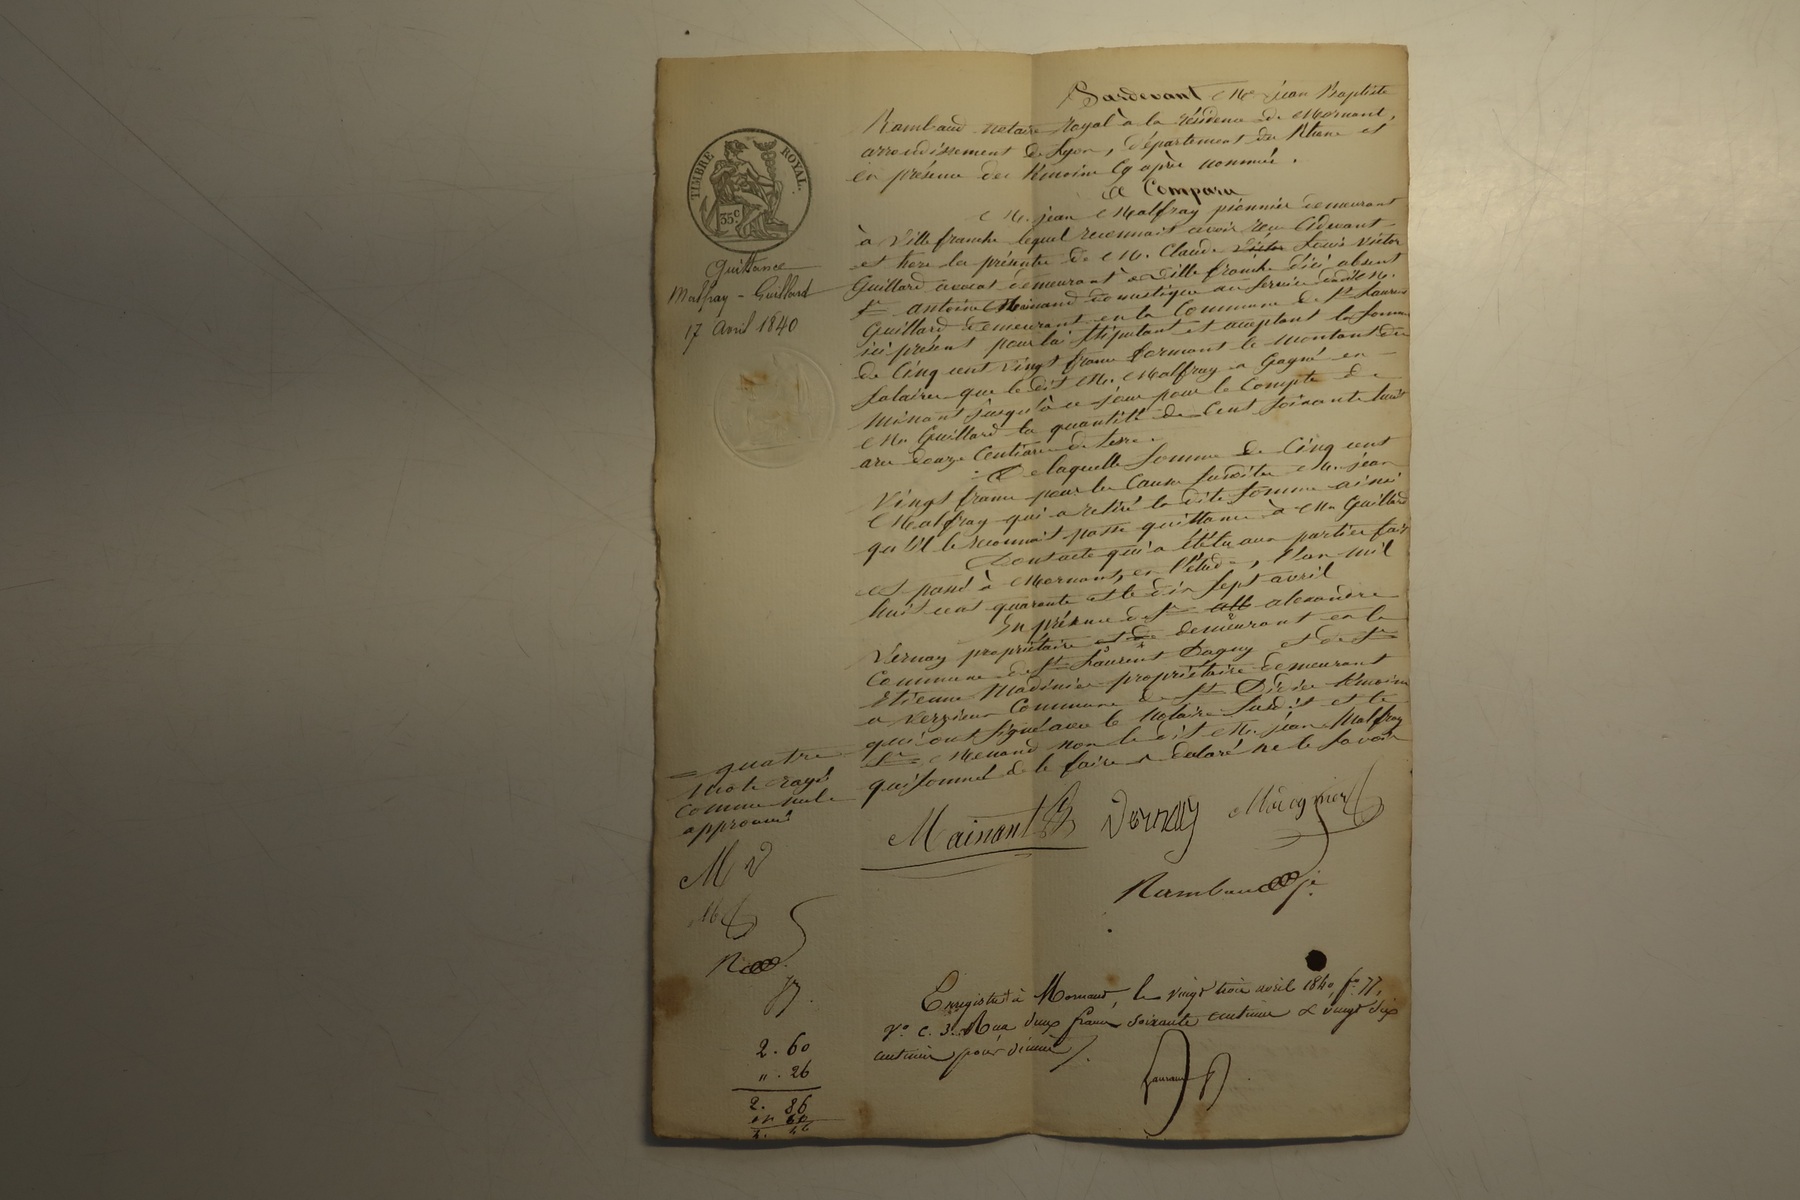 TIMBRE ROYAL.
35c
Quittance
Malfray - Guillard
17 avril 1840
Pardevant Me jean Baptiste
Rambaud notaire Royal à la résidence de Mornant,
arrondissement de Lyon, département du Rhône et
en présence des témoins cy après nommés.
A Comparu
M. jean Malfray pionnier demeurant
à Villefranche lequel reconnait avoir reçu cidevant
et hors la présente de M. Claude victor Louis victor
Guillard avocat demeurant à Villefranche d'ici absent
Sr antoine domestique au Service dudit M.
Guillard demeurant en la Commune de St Laurent
ici présent pour lui stipulant et acceptant la Somme
de Cinq cent vingt francs formant le montant des
Salaires que le dit M. Malfray a Gagné en
minant jusqu'à ce jour pour le Compte de
Mr Guillard la quantité de Cent Soixante huit
ares douze Centiares de terre.
De laquelle Somme de Cinq cent
vingt francs pour les Causes Susdites M. jean
Malfray qui a retiré la dite Somme ainsi
qu'il le reconnait passe quittance à Mr Guillard
Dont acte qui a été lu aux parties fait
et passé à Mornant, en l'étude, l'an mil
huit cent quarante et le dix sept avril
En présence de Sr alexandre
Vernay propriétaire et de demeurant en la
Commune de St Laurent Dagny et de Sr
Etienne propriétaire demeurant
a Commune de St Didier témoins
qui ont Signé avec le Notaire Susdit et le
Sr non le dit M. jean Malfray
qui Sommé de le faire a déclaré ne le Savoir
= quatre
mots rayés
comme nuls
approuvés
M V
Mainant Vernay
Rambaud
Enregistré à Mornant, le vingt trois avril 1840, fo 77,
vo c. 3. Reçu deux francs soixante centimes & vingt six
centimes pour dixième.
2. 60
". 26
2. 86